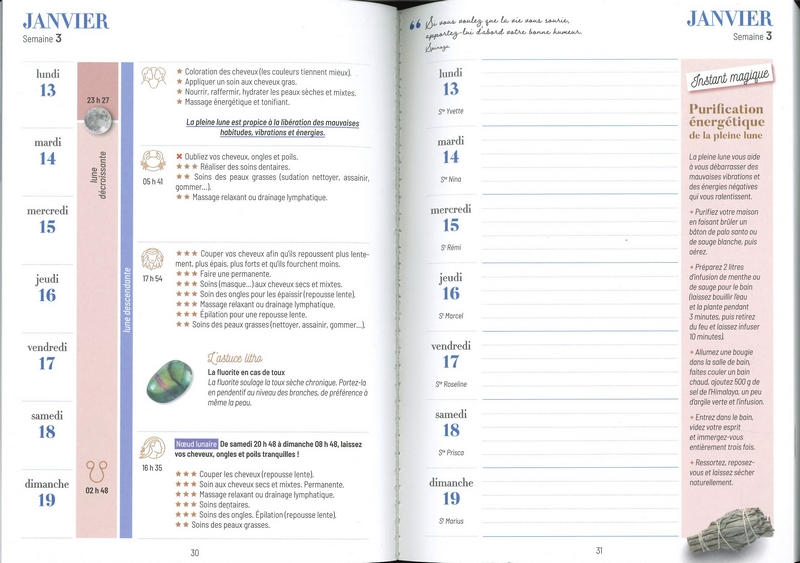 JANVIER
Semaine 3
lundi
13
mardi
14
mercredi
15
jeudi
16
vendredi
17
samedi
18
dimanche
19
23 h 27
lune
décroissante
02 h 48
lune descendante
★ Coloration des cheveux (les couleurs tiennent mieux).
★ Appliquer un soin aux cheveux gras.
★ Nourrir, raffermir, hydrater les peaux sèches et mixtes.
★ Massage énergétique et tonifiant.
La pleine lune est propice à la libération des mauvaises
habitudes, vibrations et énergies.
05 h 41
✖ Oubliez vos cheveux, ongles et poils.
★★★ Réaliser des soins dentaires.
★★ Soins des peaux grasses (sudation nettoyer, assainir,
gommer...).
★★ Massage relaxant ou drainage lymphatique.
17 h 54
★★★ Couper vos cheveux afin qu'ils repoussent plus lente-
ment, plus épais, plus forts et qu'ils fourchent moins.
★★★ Faire une permanente.
★★★ Soins (masque...) aux cheveux secs et mixtes.
★★★ Soin des ongles pour les épaissir (repousse lente).
★★★ Massage relaxant ou drainage lymphatique.
★★★ Épilation pour une repousse lente.
★★ Soins des peaux grasses (nettoyer, assainir, gommer...).
L'astuce litho
La fluorite en cas de toux
La fluorite soulage la toux sèche chronique. Portez-la
en pendentif au niveau des bronches, de préférence à
même la peau.
16 h 35
Nœud lunaire De samedi 20 h 48 à dimanche 08 h 48, laissez
vos cheveux, ongles et poils tranquilles !
★★★ Couper les cheveux (repousse lente).
★★★ Soin aux cheveux secs et mixtes. Permanente.
★★★ Massage relaxant ou drainage lymphatique.
★★★ Soins dentaires.
★★★ Soins des ongles. Épilation (repousse lente).
★★ Soins des peaux grasses.
30
“ Si vous voulez que la vie vous sourie,
apportez-lui d'abord votre bonne humeur.
Spinoza
lundi
13
Ste Yvette
mardi
14
Ste Nina
mercredi
15
St Rémi
jeudi
16
St Marcel
vendredi
17
Ste Roseline
samedi
18
Ste Prisca
dimanche
19
St Marius
31
JANVIER
Semaine 3
Instant magique
Purification
énergétique
de la pleine lune
La pleine lune vous aide
à vous débarrasser des
mauvaises vibrations et
des énergies négatives
qui vous ralentissent.
+ Purifiez votre maison
en faisant brûler un
bâton de palo santo ou
de sauge blanche, puis
aérez.
+ Préparez 2 litres
d'infusion de menthe ou
de sauge pour le bain
(laissez bouillir l'eau
et la plante pendant
3 minutes, puis retirez
du feu et laissez infuser
10 minutes).
+ Allumez une bougie
dans la salle de bain,
faites couler un bain
chaud, ajoutez 500 g de
sel de l'Himalaya, un peu
d'argile verte et l'infusion.
+ Entrez dans le bain,
videz votre esprit
et immergez-vous
entièrement trois fois.
+ Ressortez, reposez-
vous et laissez sécher
naturellement.